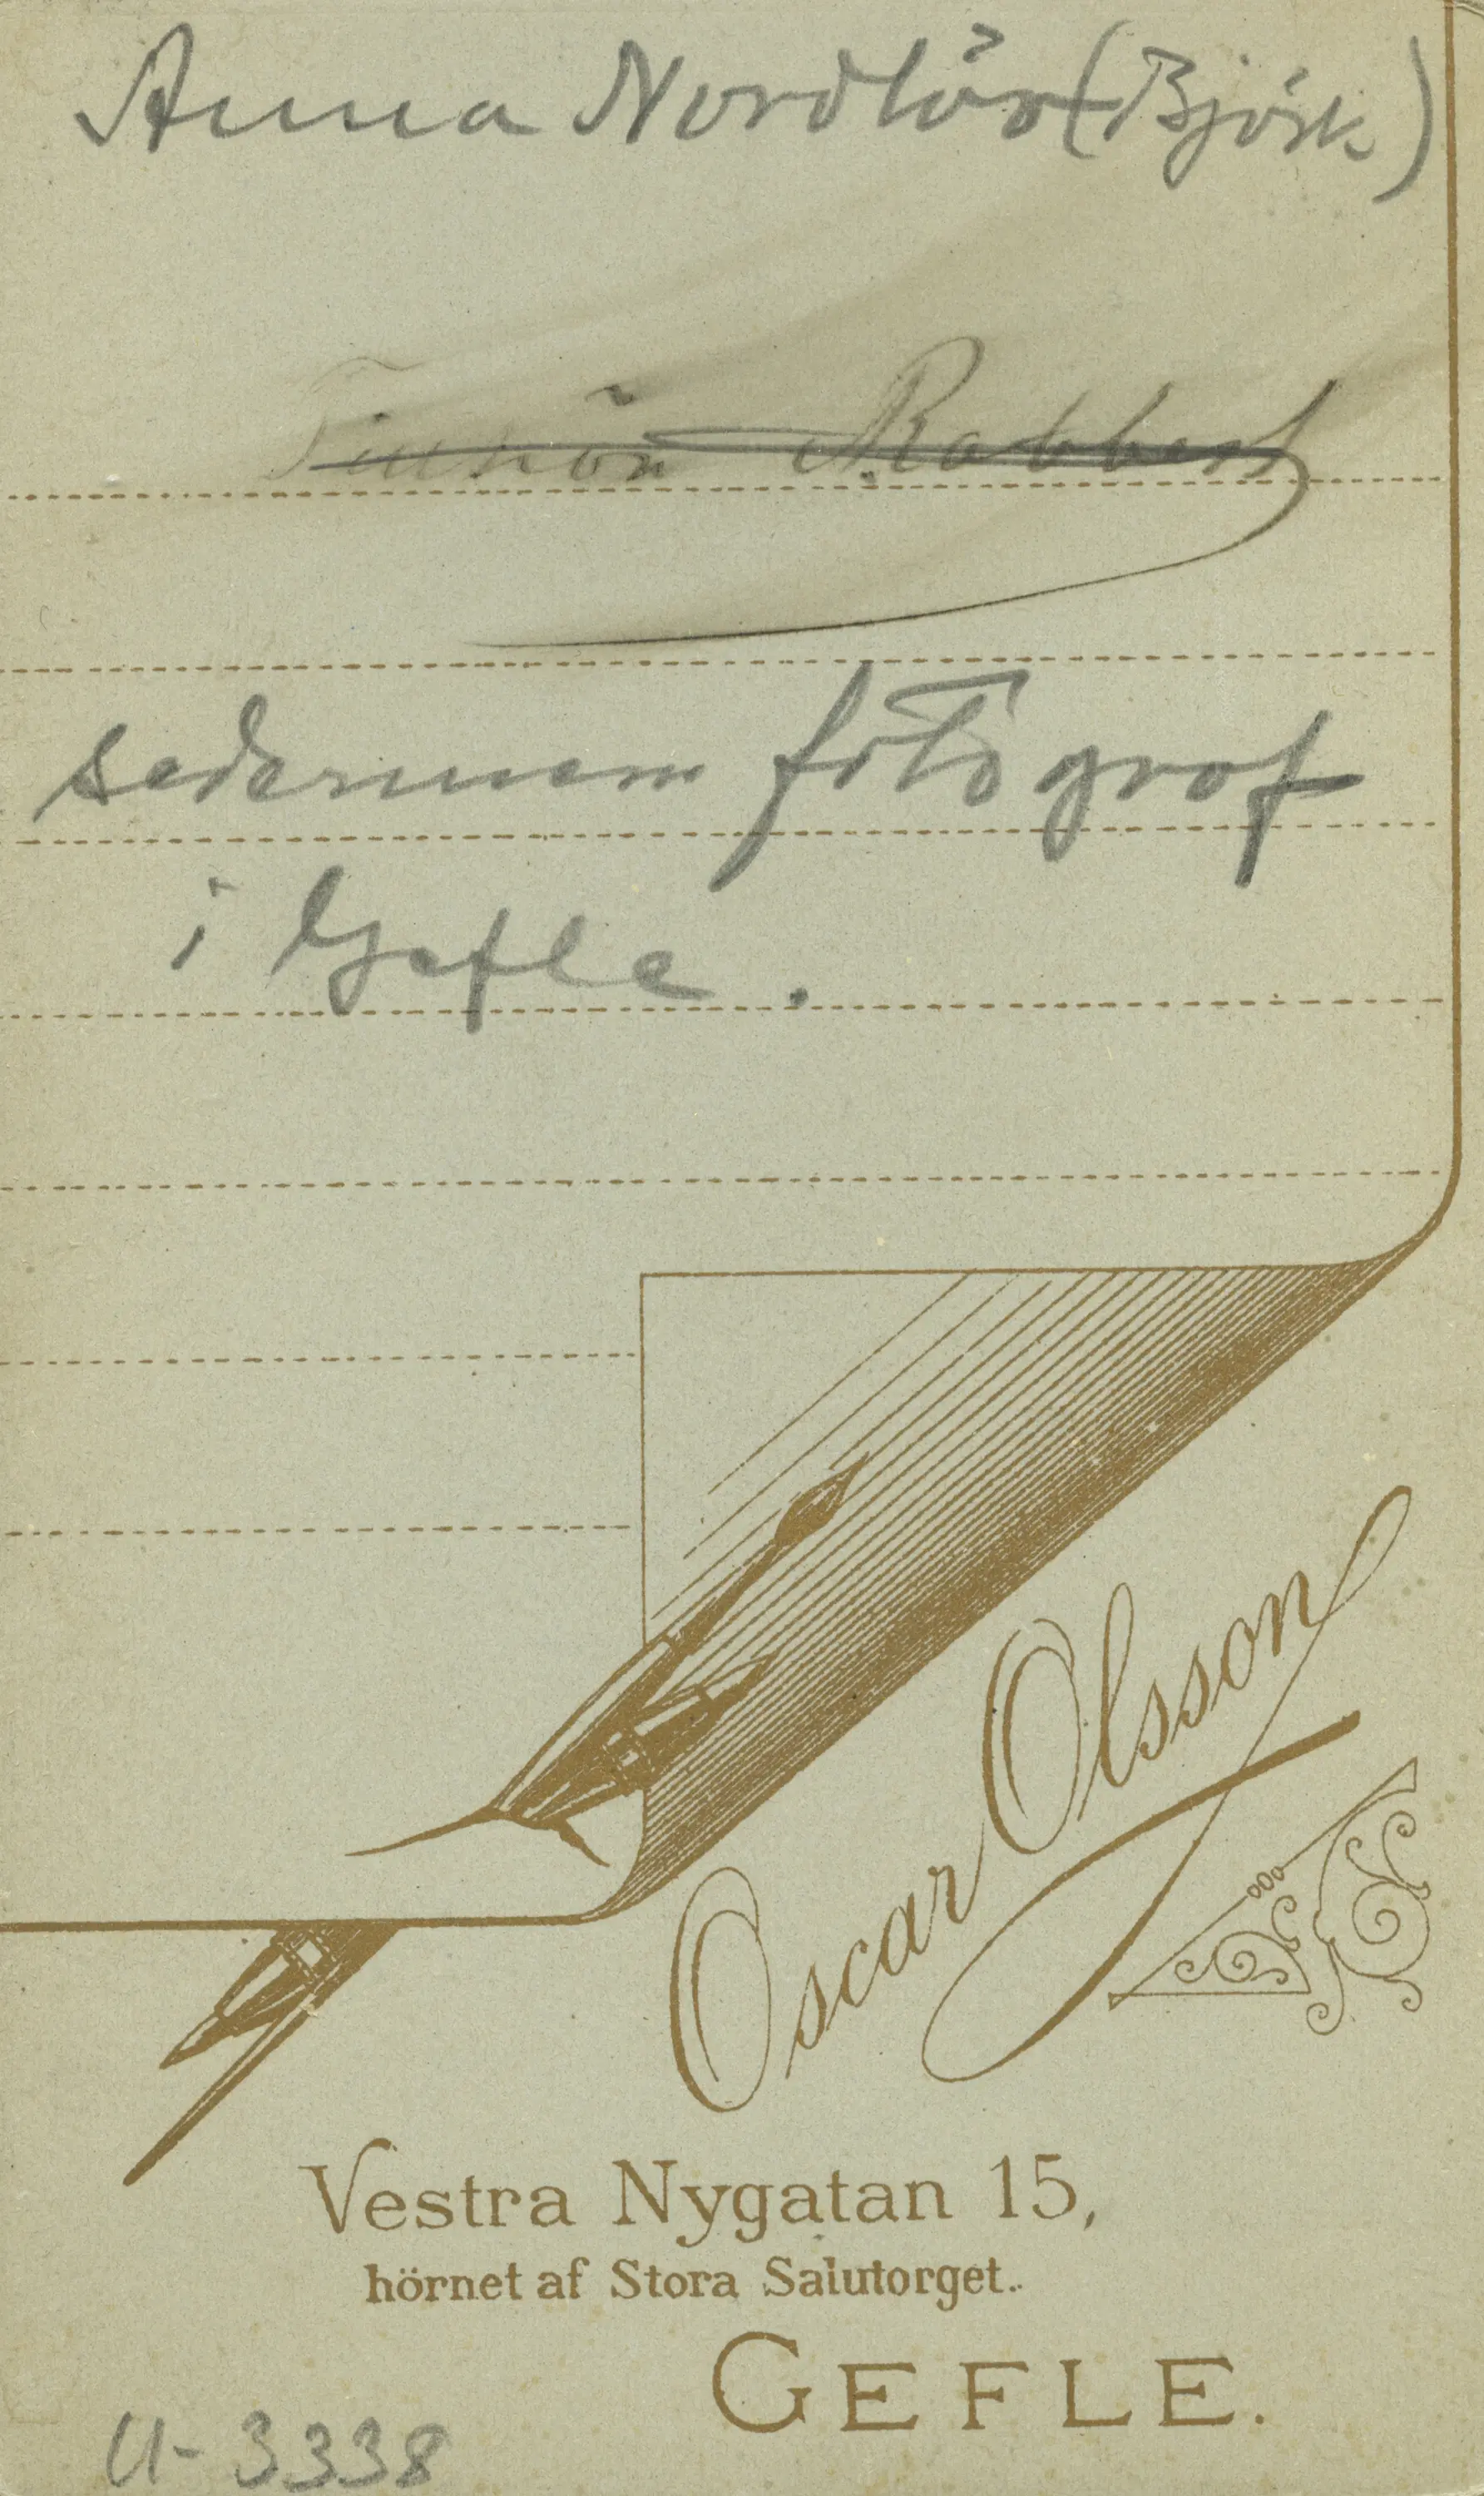 Anna Nordlöv (Björk)
sedermera fotograf
i Gefle.
Oscar Olsson
Vestra Nygatan 15,
hörnet af Stora Salutorget.
GEFLE.
U-3338